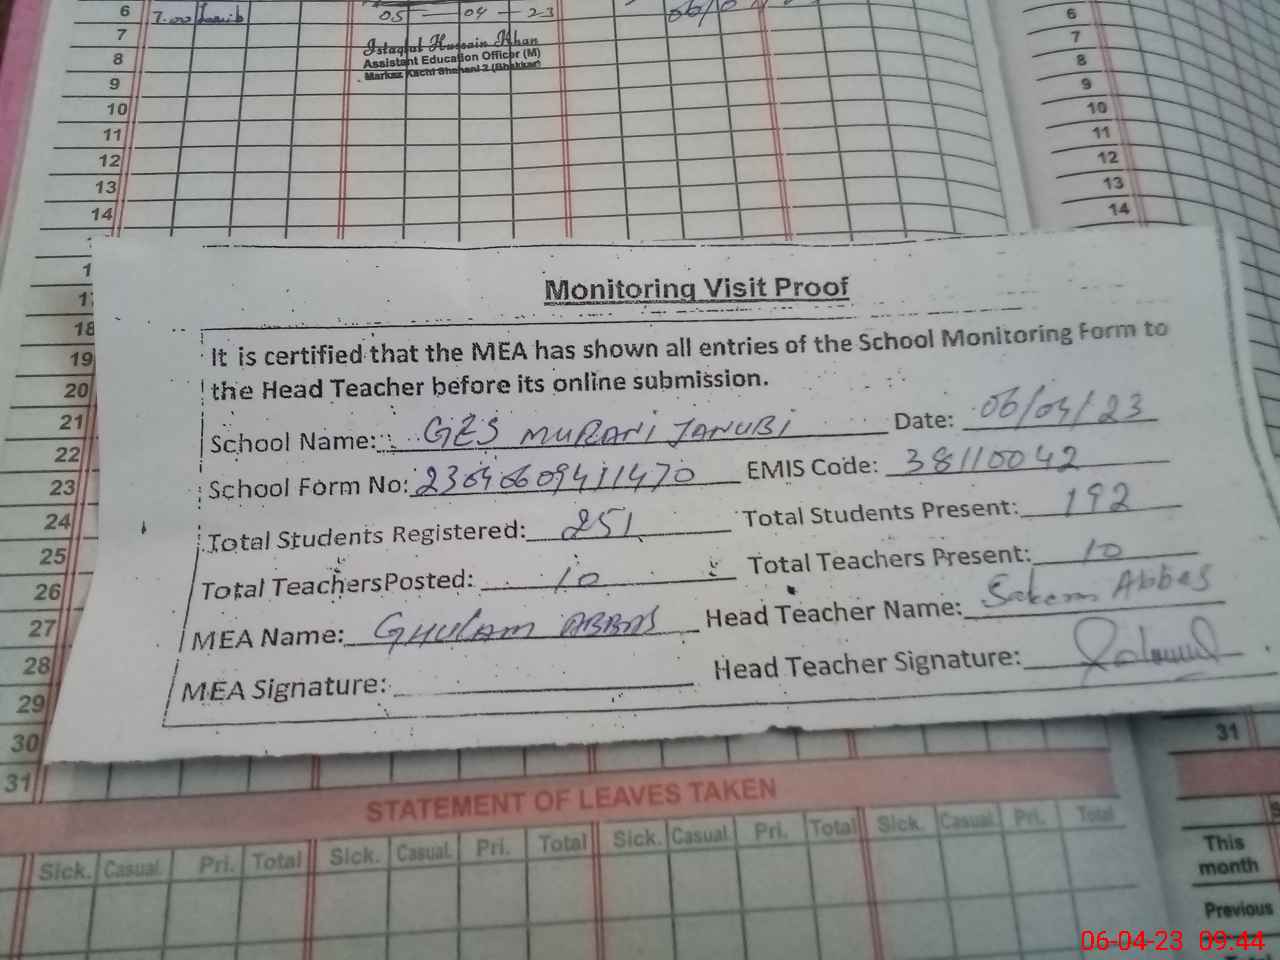 6 7.00 05 — 04 — 23 6
7 7
Istaqbal Hussain Khan
8 Assistant Education Officer (M) 8
Markaz Kachi Shahani 2 (Bhakkar)
9 9
10 10
11 11
12 12
13 13
14 14
18
19
20
21
22
23
24
25
26
27
28
29
30
31
Monitoring Visit Proof
It is certified that the MEA has shown all entries of the School Monitoring Form to
the Head Teacher before its online submission.
School Name: GES MURANI JANUBI Date: 06/04/23
School Form No: 23646609411470 EMIS Code: 38110042
Total Students Registered: 251 Total Students Present: 192
Total Teachers Posted: 10 Total Teachers Present: 10
MEA Name: GHULAM ABBAS Head Teacher Name: Abbas
MEA Signature: Head Teacher Signature:
31
STATEMENT OF LEAVES TAKEN
Sick. Casual. Pri. Total Sick. Casual. Pri. Total Sick. Casual. Pri. Total Sick. Casual. Pri. Total
This
month
Previous
Total
06-04-23 09:44